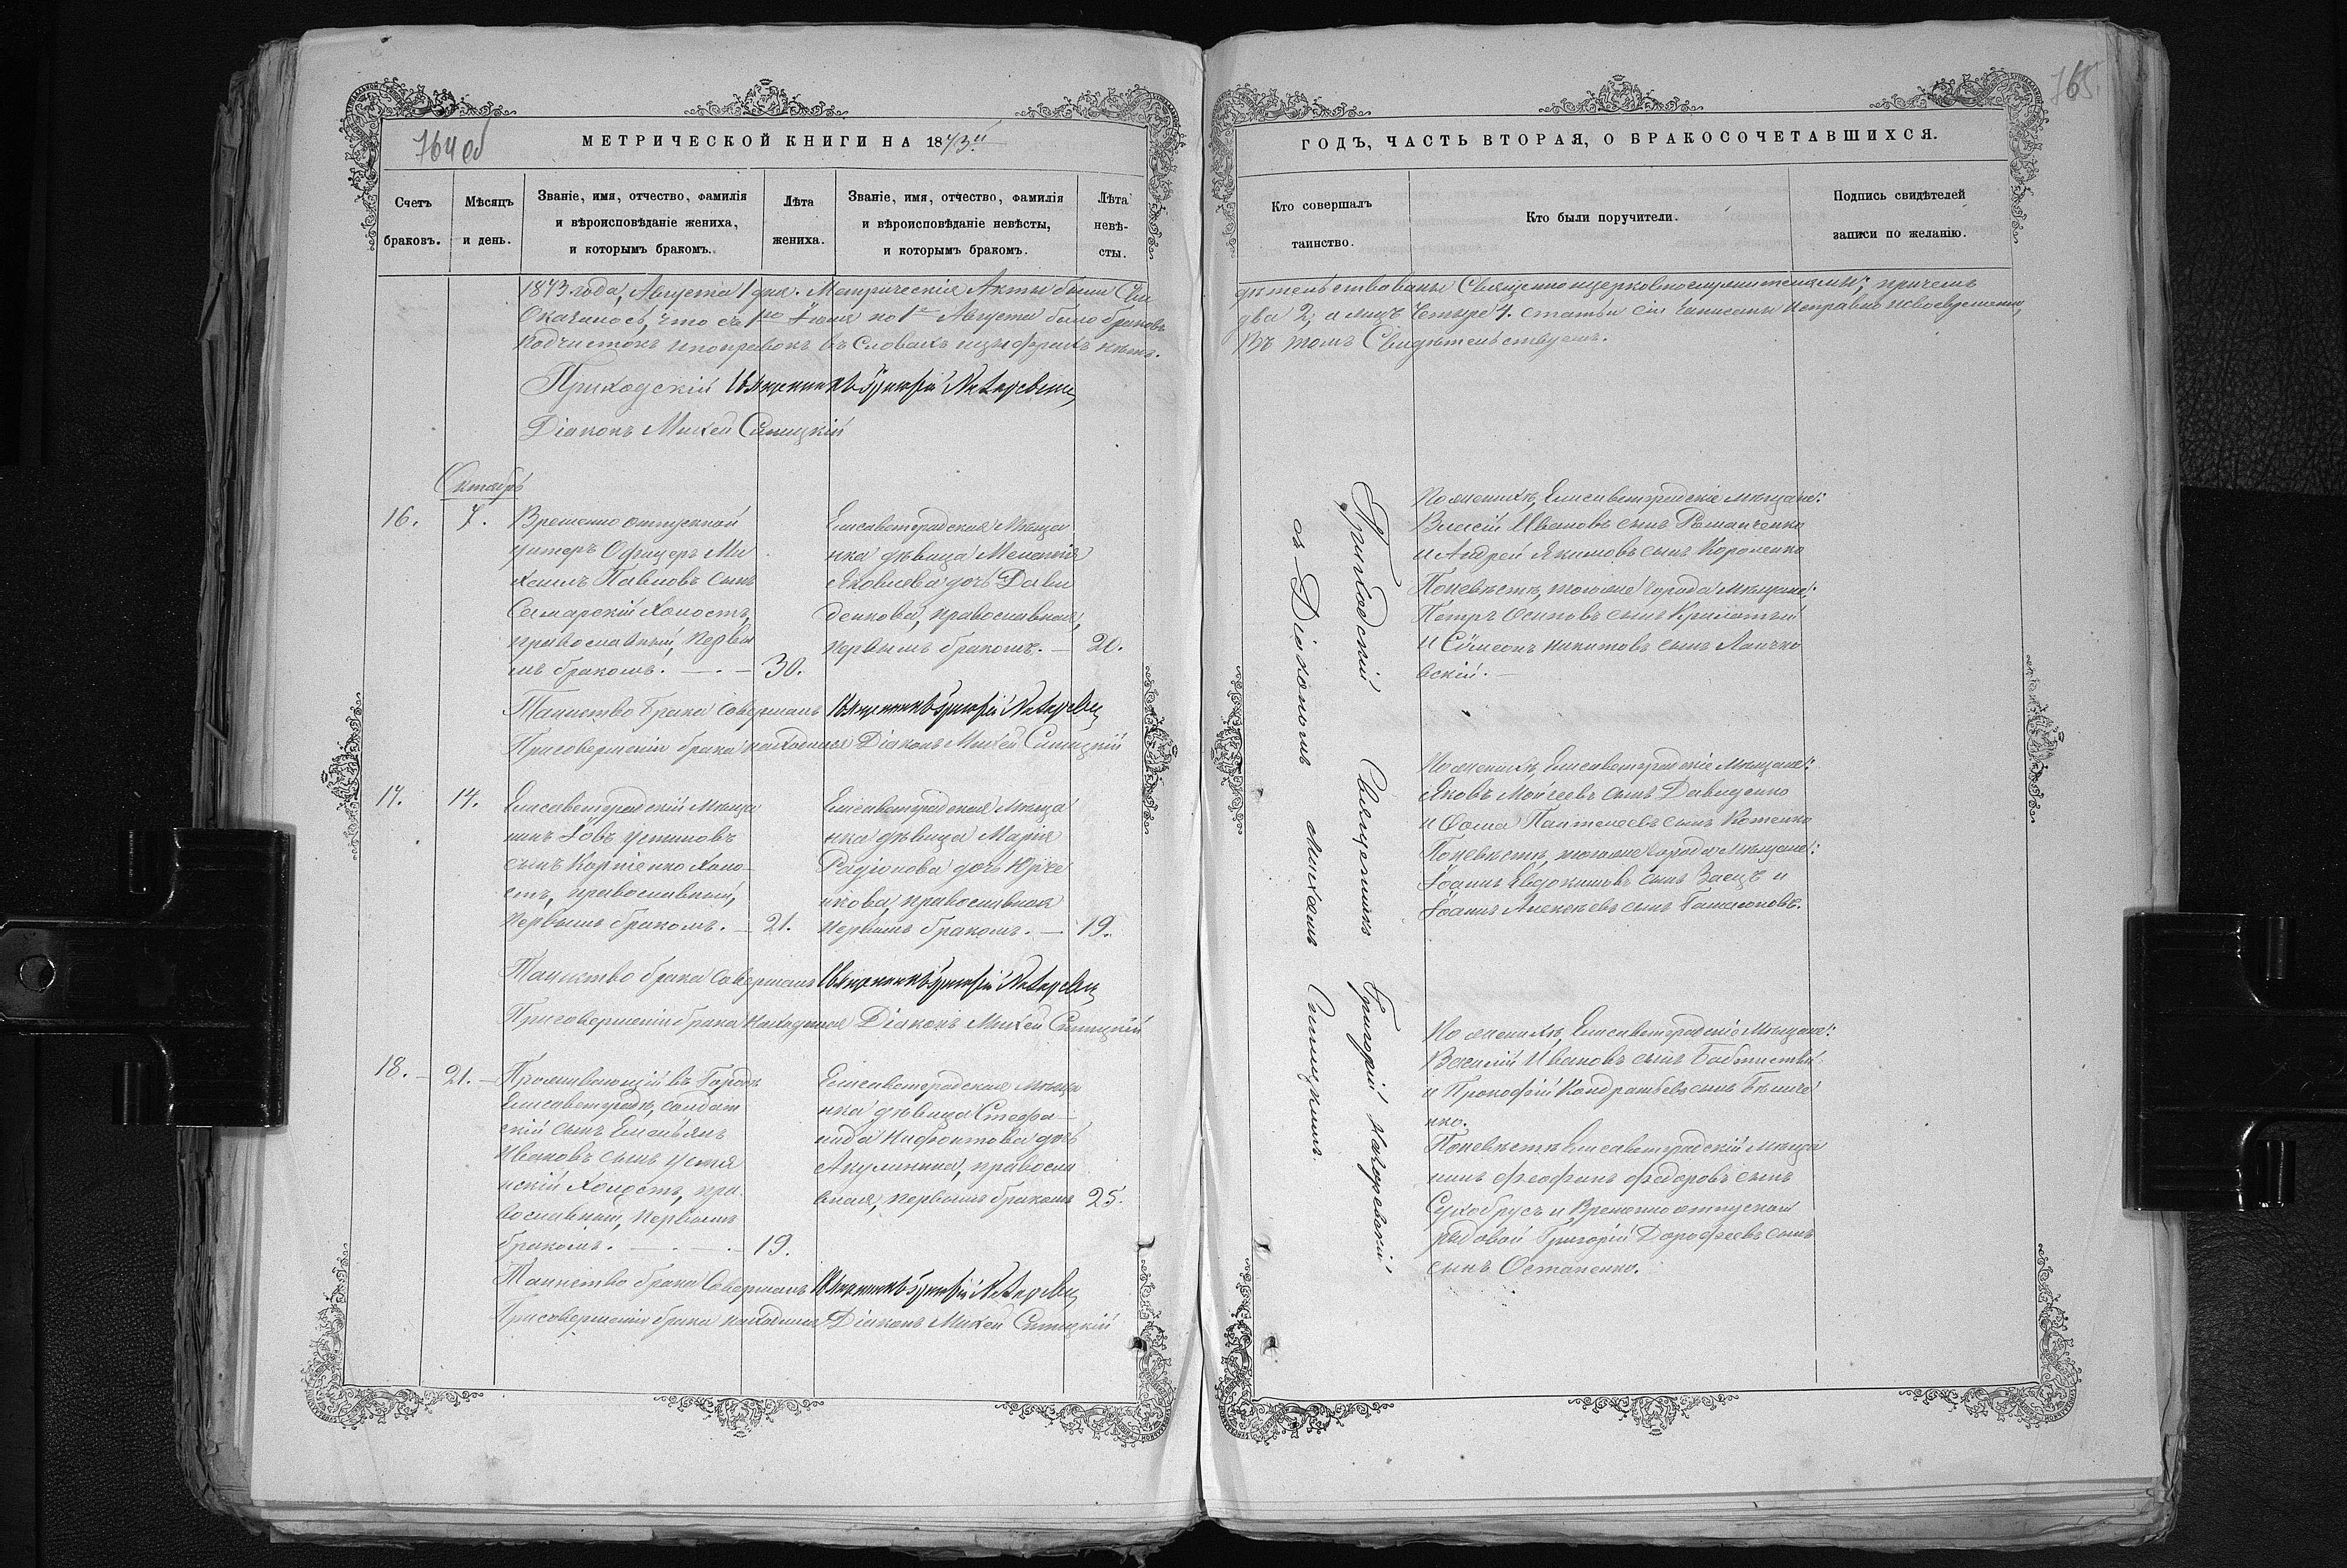 764 об
МЕТРИЧЕСКОЙ КНИГИ НА 1873й
Счетъ браковъ.
Мѣсяцъ и день.
Званіе, имя, отчество, фамилія
и вѣроисповѣданіе жениха,
и которымъ бракомъ.
Лѣта
жениха.
Званіе, имя, отчество, фамилія
и вѣроисповѣданіе невѣсты,
и которымъ бракомъ.
Лѣта
невѣ-
сты.
1873 года, Августа 1 дня. Метрическія Акты были Сви
Оказалось, что съ 1го Іюля по 1е Августа было браковъ
Подчистокъ и поправокъ въ словахъ и цыфрахъ нѣтъ.
Приходскій Священникъ Григорій
Діаконъ Михей Синицкій
Октябрь
16.
7.
Временно отпускной
унтеръ Офицеръ Ми
хаилъ Павловъ сынъ
Самарскій холостъ,
православный, первы
мъ бракомъ.
30.
Елисаветградская Мѣща
нка дѣвица Меланія
Яковлева дочь Дави
денкова, православная,
первымъ бракомъ.
20.
Таинство брака Совершалъ Священникъ Григорій
При совершеніи брака находился Діаконъ Михей Синицкій
17.
14.
Елисаветградскій мѣща
нинъ Іовъ Устиновъ
сынъ Корніенко холо-
стъ, православный,
первымъ бракомъ.
21.
Елисаветградская мѣща
нка дѣвица Марія
Радіонова дочь Юрче
нкова, православная
первымъ бракомъ.
19.
Таинство брака Совершалъ Священникъ Григорій
При совершеніи брака находился Діаконъ Михей Синицкій
18.
21.
Проживающій въ Городѣ
Елисаветградѣ, солдат
скій сынъ Емельянъ
Ивановъ сынъ Устя
нскій холостъ, пра
вославный, первымъ
бракомъ.
19.
Елисаветградская мѣща
нка дѣвица Стефа-
нида Нифонтова дочь
Акулинина, правосла
вная, первымъ бракомъ
25.
Таинство брака Совершалъ Священникъ Григорій
При совершеніи брака находился Діаконъ Михей Синицкій
765
ГОДЪ, ЧАСТЬ ВТОРАЯ, О БРАКОСОЧЕТАВШИХСЯ.
Кто совершалъ
таинство.
Кто были поручители.
Подпись свидѣтелей
записи по желанію.
дѣтельствованы Священноцерковнослужителями; причемъ
два 2, а лицъ Четыре 4. Статьи сіи записаны исправно и своевременно,
Въ томъ Свидѣтельствуемъ.
Приходскій Священникъ Григорій
съ Діакономъ Михеемъ Синицкимъ.
По женихѣ, Елисаветградскіе мѣщане:
Ивановъ сынъ Романченко
и Андрей Якимовъ сынъ Короленко
По невѣстѣ, того же города мѣщане:
Петръ Осиповъ сынъ
и Сѵмеонъ Никитовъ сынъ
вскій.
По женихѣ, Елисаветградскіе мѣщане:
Яковъ Моѵсеевъ сынъ Давиденко
и Ѳома сынъ Котенко
По невѣстѣ, того же города мѣщане:
Іоаннъ Евдокимовъ сынъ Заецъ и
Іоаннъ Алексѣевъ сынъ
По женихѣ, Елисаветградскіе мѣщане:
Василій Ивановъ сынъ
и Прокофій Кондратьевъ сынъ
нко.
По невѣстѣ Елисаветградскій мѣща
нинъ Феофанъ Федоровъ сынъ
Сухобрусъ и Временно отпускной
рядовой Григорій Дорофеевъ сынъ
сынъ Остапенко.